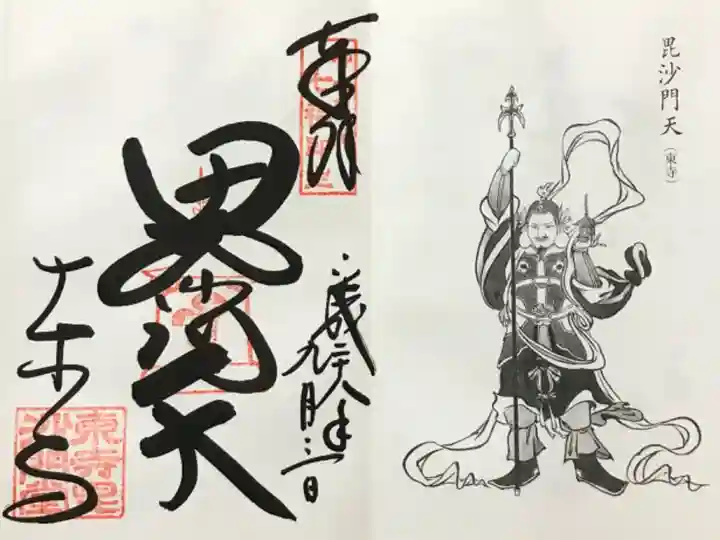 毘沙門天
(東寺)
奉拝
平成二十八年
九月三日
毘沙門天
東寺
東寺毘
沙門堂